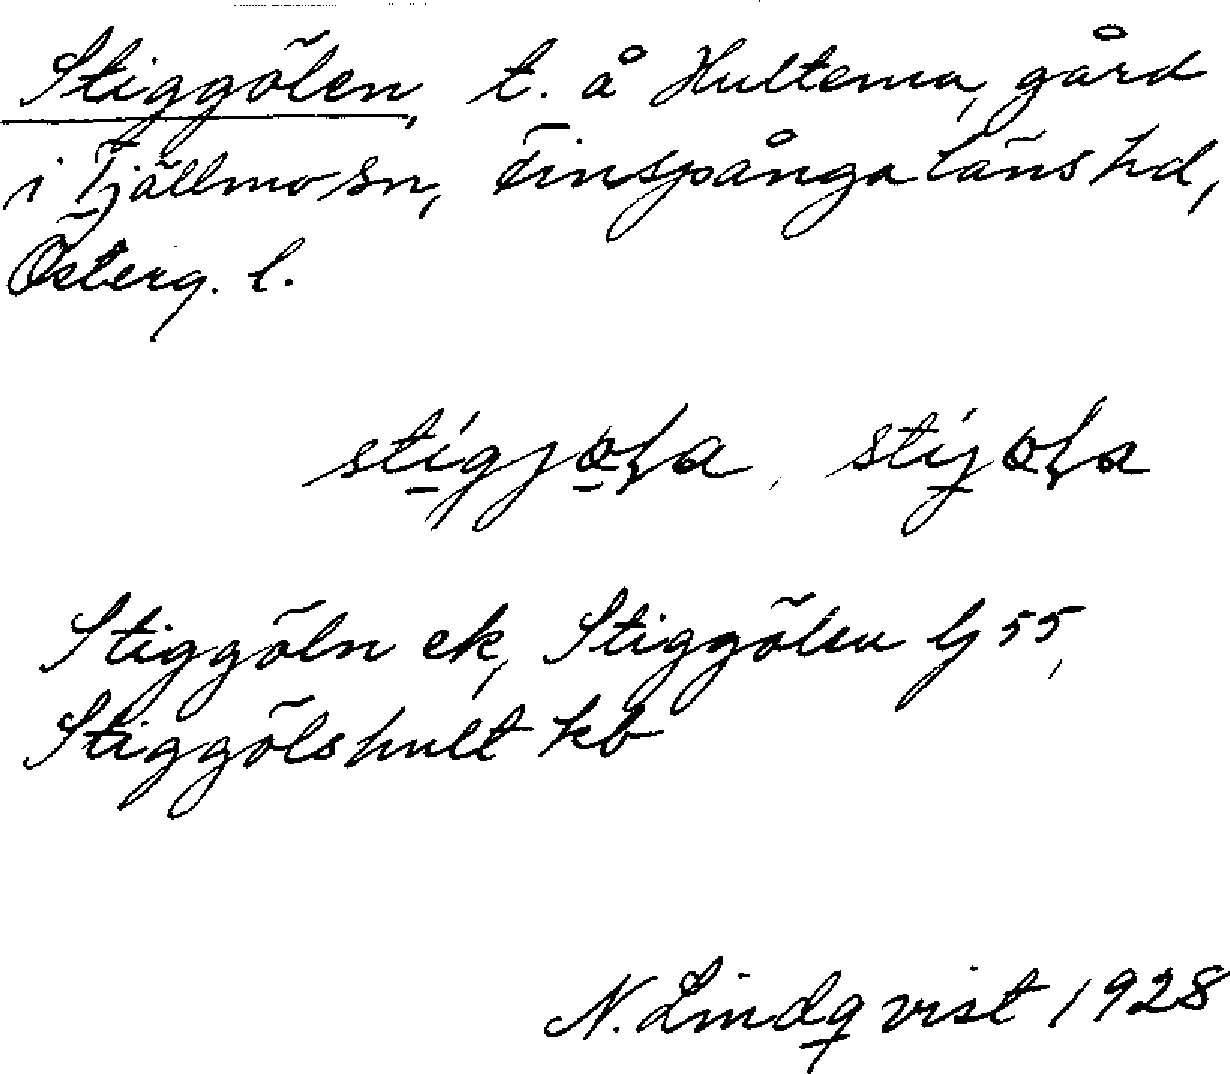 Stiggölen, t. å Hultema, gård
i Tjällmo sn, Finspånga läns hd,
Österg. l.
Stiggöln ek, Stiggölen Gj 55,
Stiggölshult kb
N. Lindqvist 1928